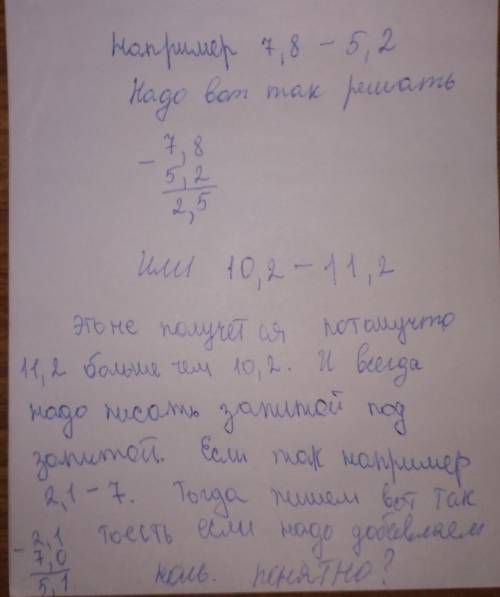 Например 7,8 - 5,2
Надо вот так решать
- 7,8
5,2
2,5
Или 10,2 - 11,2
это не получется потомучто
11,2 больше чем 10,2. И всегда
надо писать запитой под
запитой. Если так например
2,1 - 7. Тогда пишем вот так
- 2,1 тоесть если надо добевлаем
7,0
5,1 ноль. понятно?